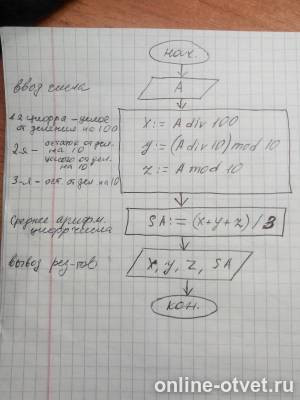 нач.
ввод числа
A
1-я цифра - целое
от деления на 100
x := A div 100
2-я - остаток от дел.
на 10
целого от дел.
на 10
y := (A div 10) mod 10
3-я - ост. от дел на 10
z := A mod 10
Среднее арифм.
цифр числа
SA := (x+y+z)/3
вывод рез-тов
x, y, z, SA
кон.
online-otvet.ru